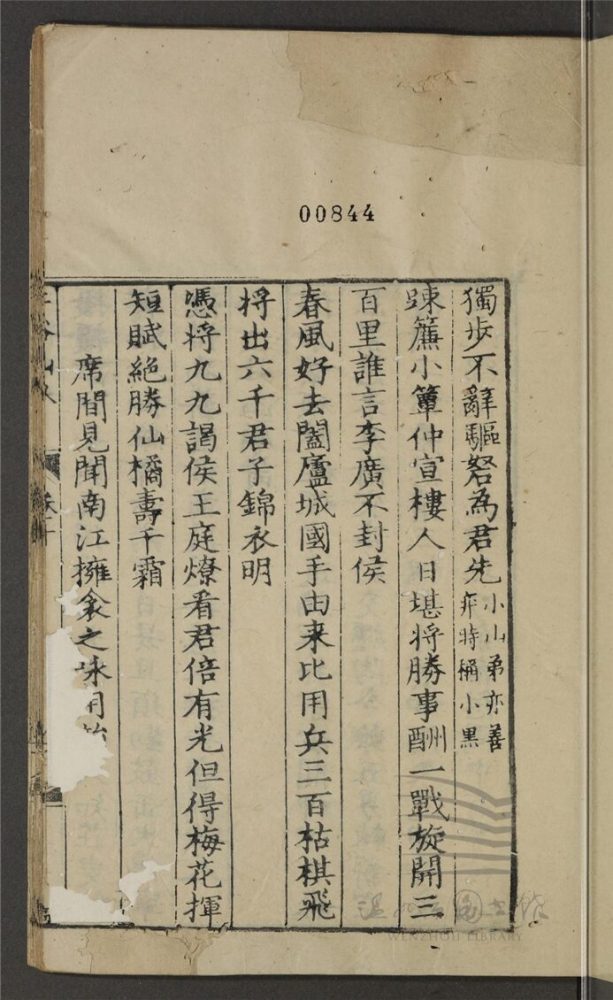 00844
獨步不辭驅駑為君先小山弟亦善
弈時稱小黑
踈簾小簟仲宣樓人日堪將勝事酬一戰旋開三
百里誰言李廣不封侯
春風好去闔廬城國手由来比用兵三百枯棋飛
将出六千君子錦衣明
憑將九九謁侯王庭燎看君倍有光但得梅花揮
短賦絕勝仙橘壽千霜
席間見聞南江擁衾之咏用
WENZHOU LIBRARY